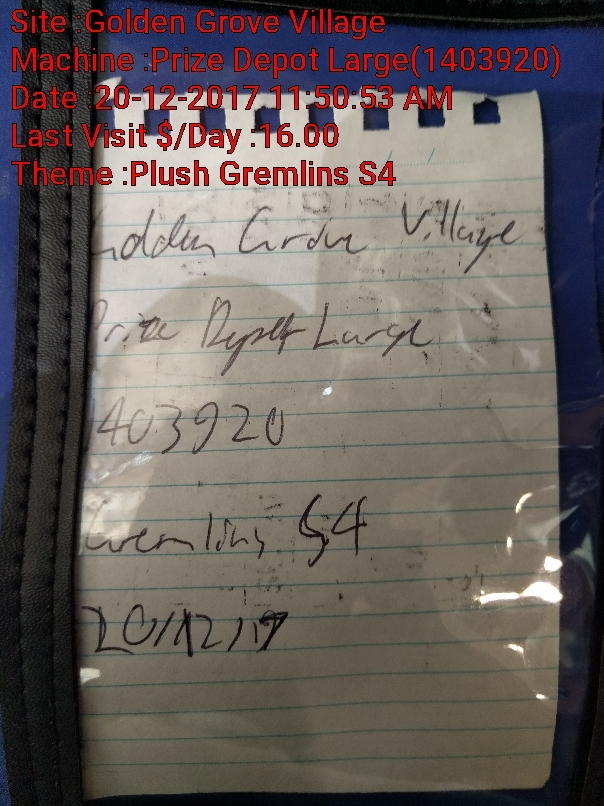 Site :Golden Grove Village
Machine :Prize Depot Large(1403920)
Date :20-12-2017 11:50:53 AM
Last Visit $/Day :16.00
Theme :Plush Gremlins S4
Golden Grove Village
Prize Depot Large
1403920
Gremlins S4
20/12/17